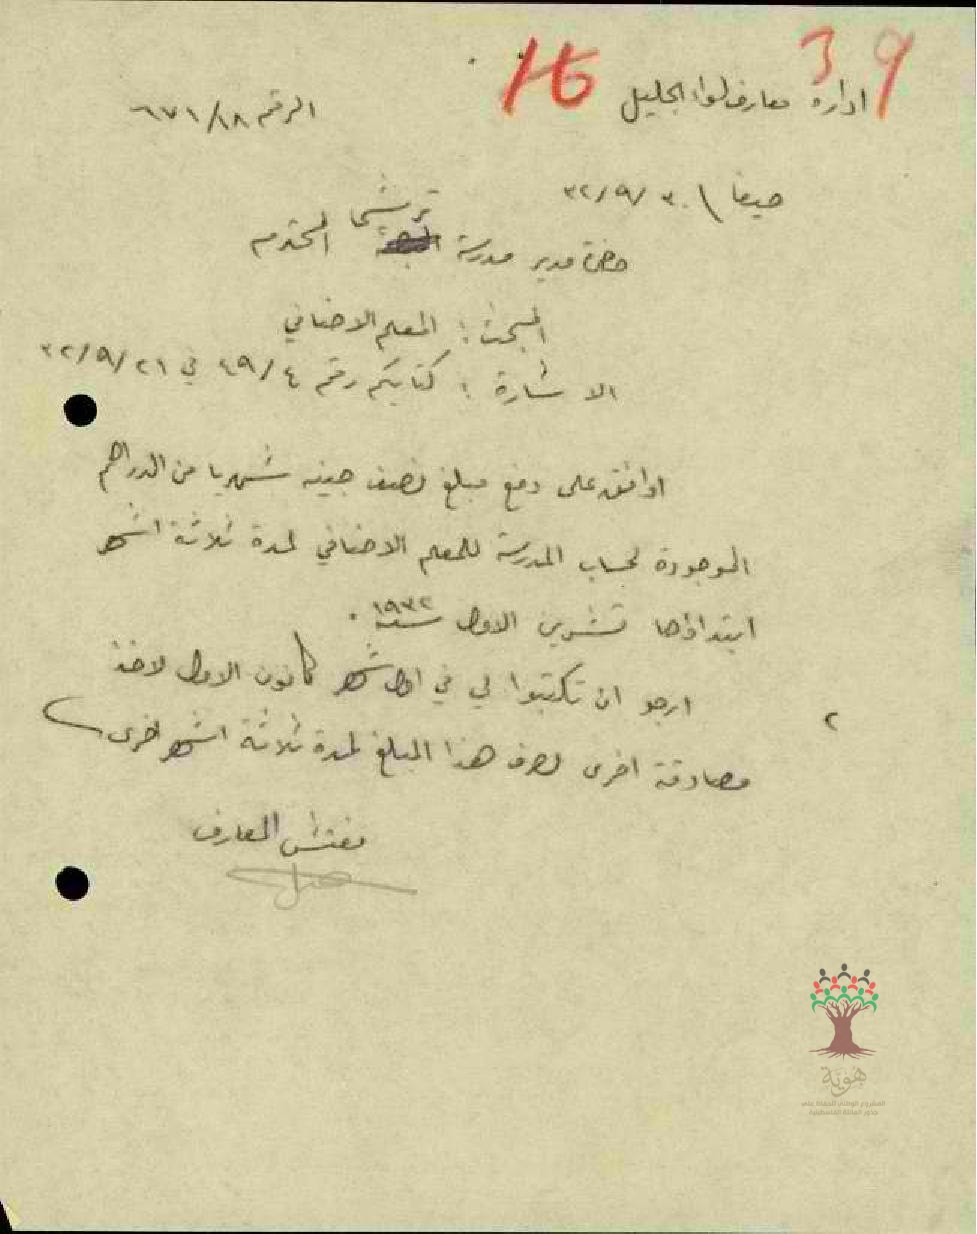 39
16
ادارة معارف لواء الجليل
الرقم ٦٧١/١٨
حيفا ٣٢/٩/٣٠
ترشيحا
حضرة مدير مدرسة المحترم
المبحث : المعلم الاضافي
الاشارة : كتابكم رقم ٤٩/٤ في ٣٢/٩/٢١
اوافق على دفع مبلغ نصف جنيه شهريا من الدراهم
الموجودة لحساب المدرسة للمعلم الاضافي لمدة ثلاثة اشهر
ابتداؤها تشرين الاول سنة ١٩٣٢ .
٢ ارجو ان تكتبوا لي في اول شهر كانون الاول لاخذ
مصادقة اخرى لصرف هذا المبلغ لمدة ثلاثة اشهر اخرى
مفتش المعارف
هوية
المشروع الوطني للحفاظ على
جذور العائلة الفلسطينية